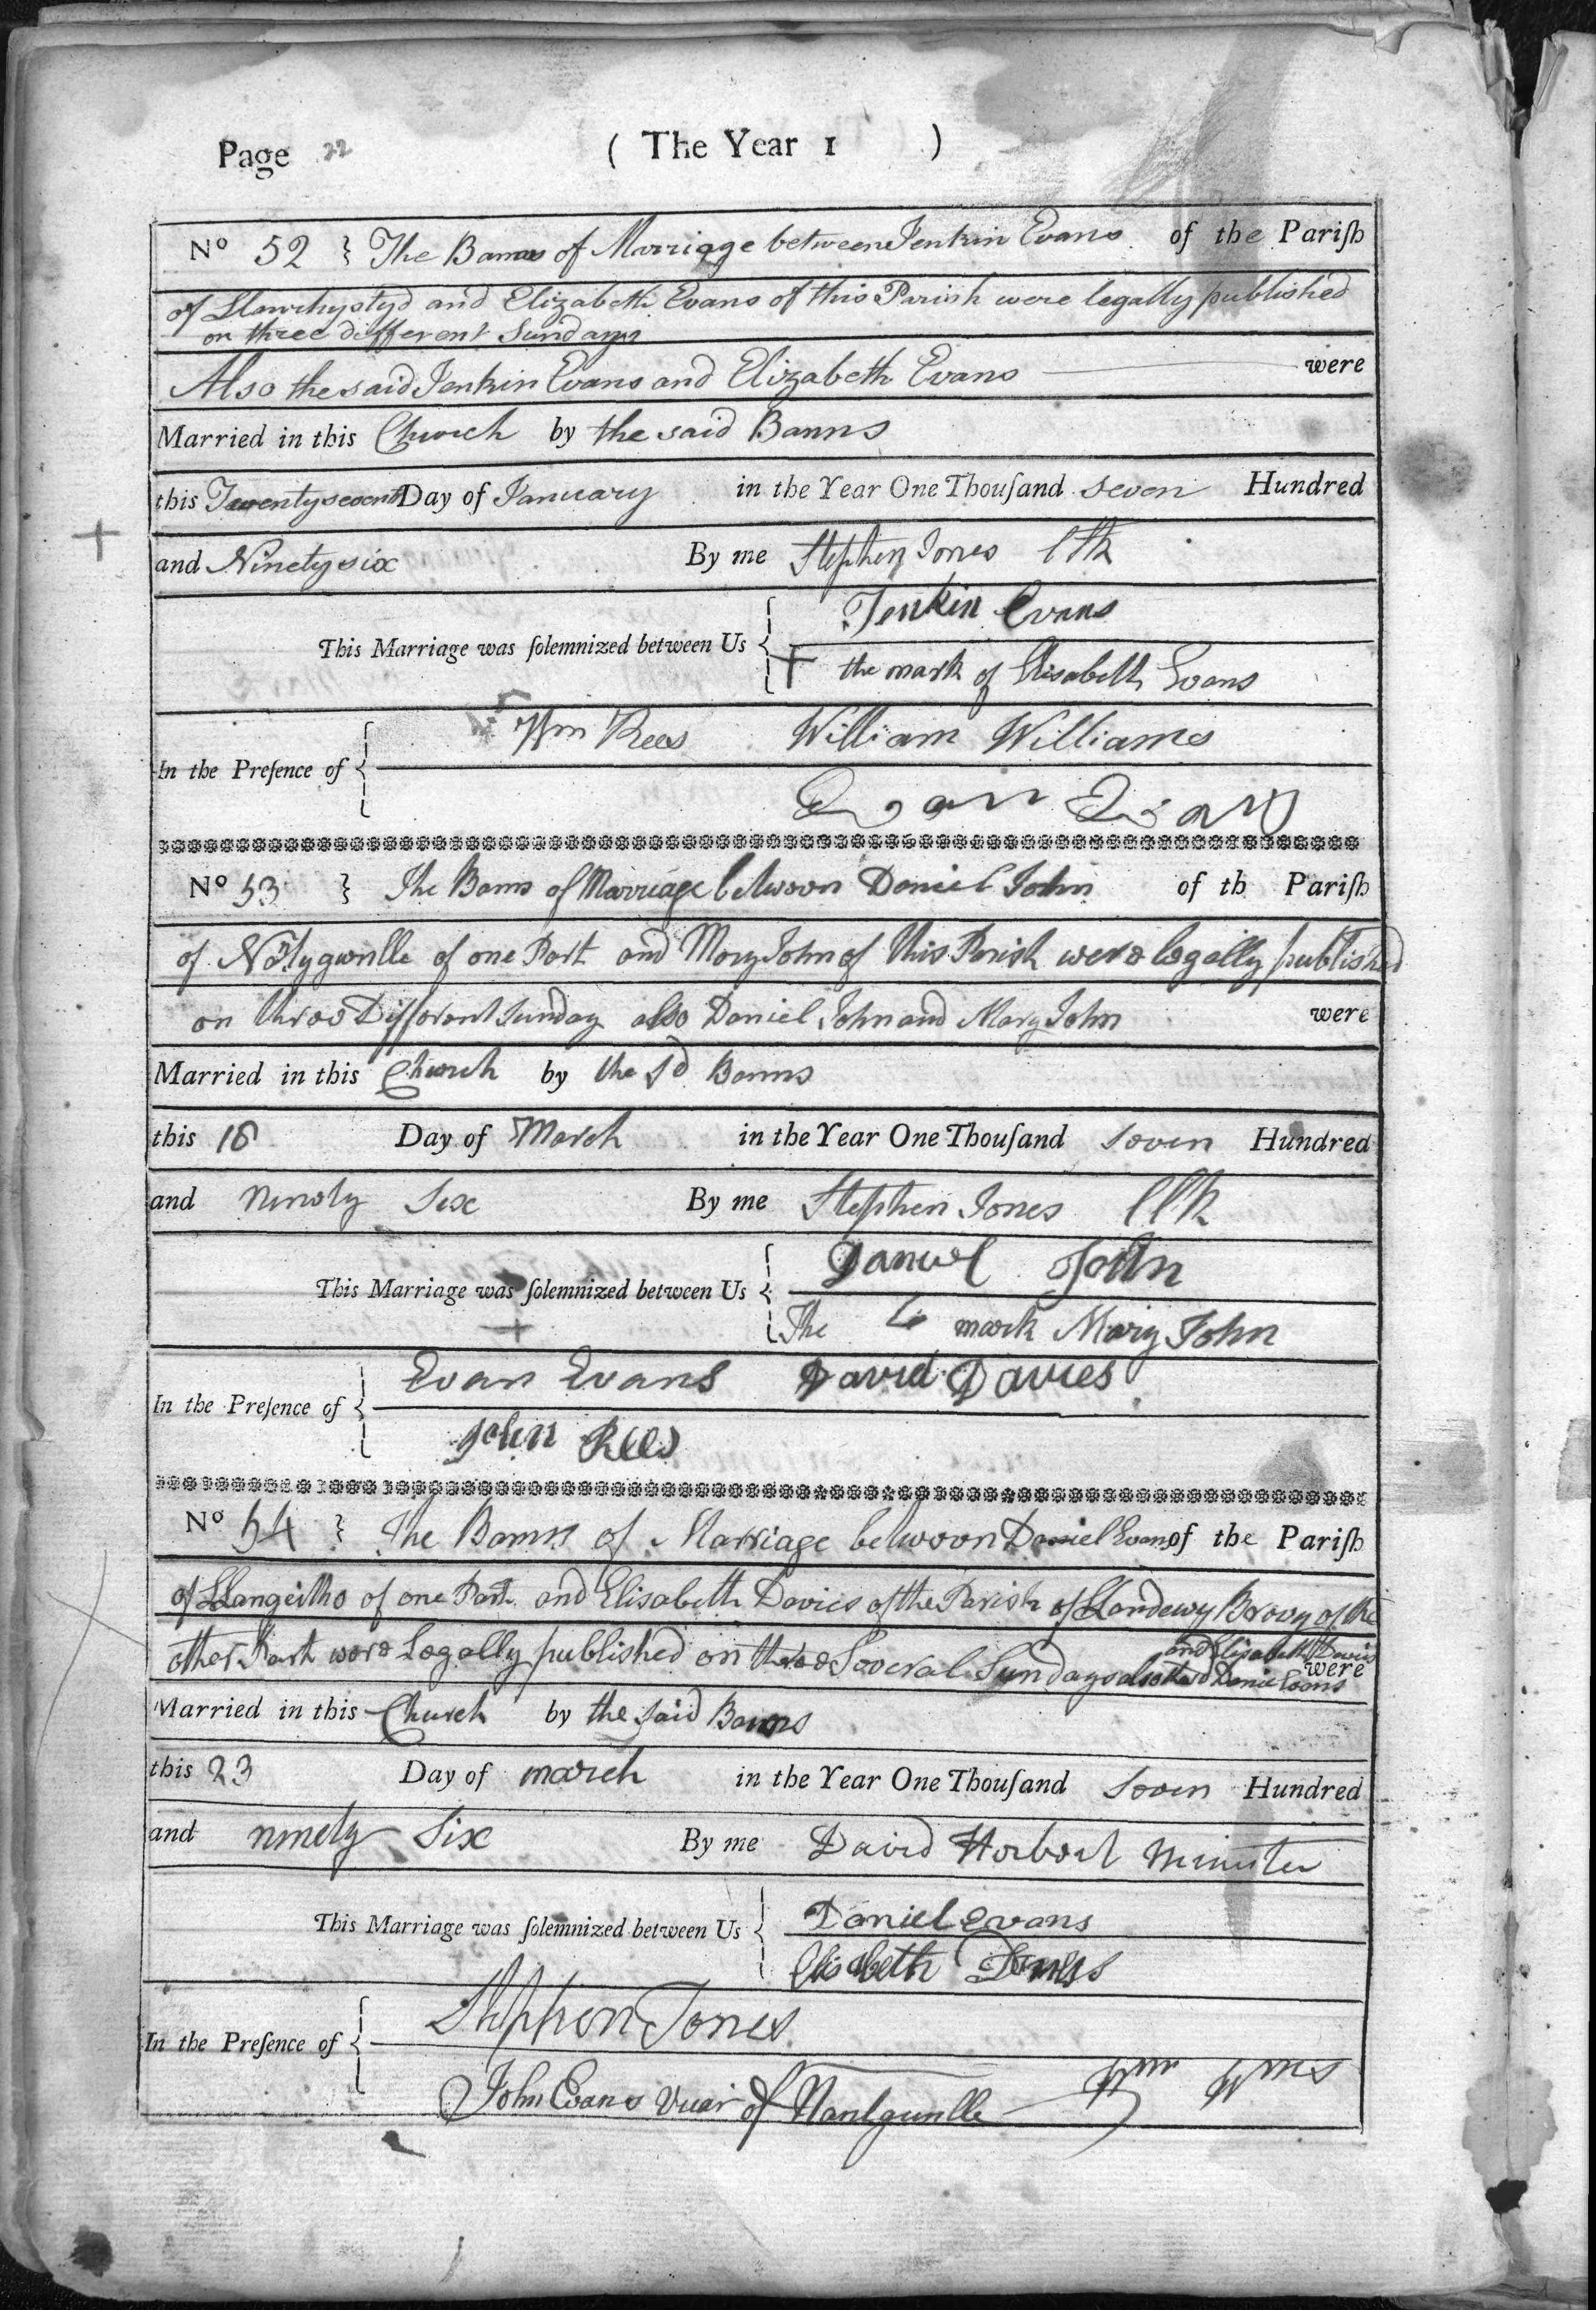 Page 22 ( The Year 1 )
No 52 } The Banns of Marriage between Jenkin Evans of the Pariſh
of Llanrhystyd and Elizabeth Evans of this Parish were legally published
on three different Sundays
Also the said Jenkin Evans and Elizabeth Evans were
Married in this Church by the said Banns
this Twentyseventh Day of January in the Year One Thouſand seven Hundred
and Ninety six By me Stephen Jones Clk
Jenkin Evans
This Marriage was ſolemnized between Us
+ the mark of Elisabeth Evans
Wm Rees William Williams
In the Preſence of
Evan Evans
No 53 } The Banns of Marriage between Daniel John of th Pariſh
of of one Part and Mary John of this Parish were legally published
on three Different Sunday also Daniel John and Mary John were
Married in this Church by the sd Banns
this 18 Day of March in the Year One Thouſand seven Hundred
and ninety Six By me Stephen Jones Clk
Daniel John
This Marriage was ſolemnized between Us
The mark Mary John
Evan Evans David Davies
In the Preſence of
John Rees
No 54 } The Banns of Marriage between Daniel Evans of the Pariſh
of LLangeitho of one Part and Elisabeth Davies of the Parish of Llandewy Brevy of the
other Part were Legally published on three Several Sundays also the sd Daniel Evans
and Elisabeth Davies were
Married in this Church by the said Banns
this 23 Day of march in the Year One Thouſand seven Hundred
and ninety Six By me David Herbert Minister
Daniel Evans
This Marriage was ſolemnized between Us
Elisabeth Davies
Stephen Jones
In the Preſence of
John Evans Vicar of Wm Wms